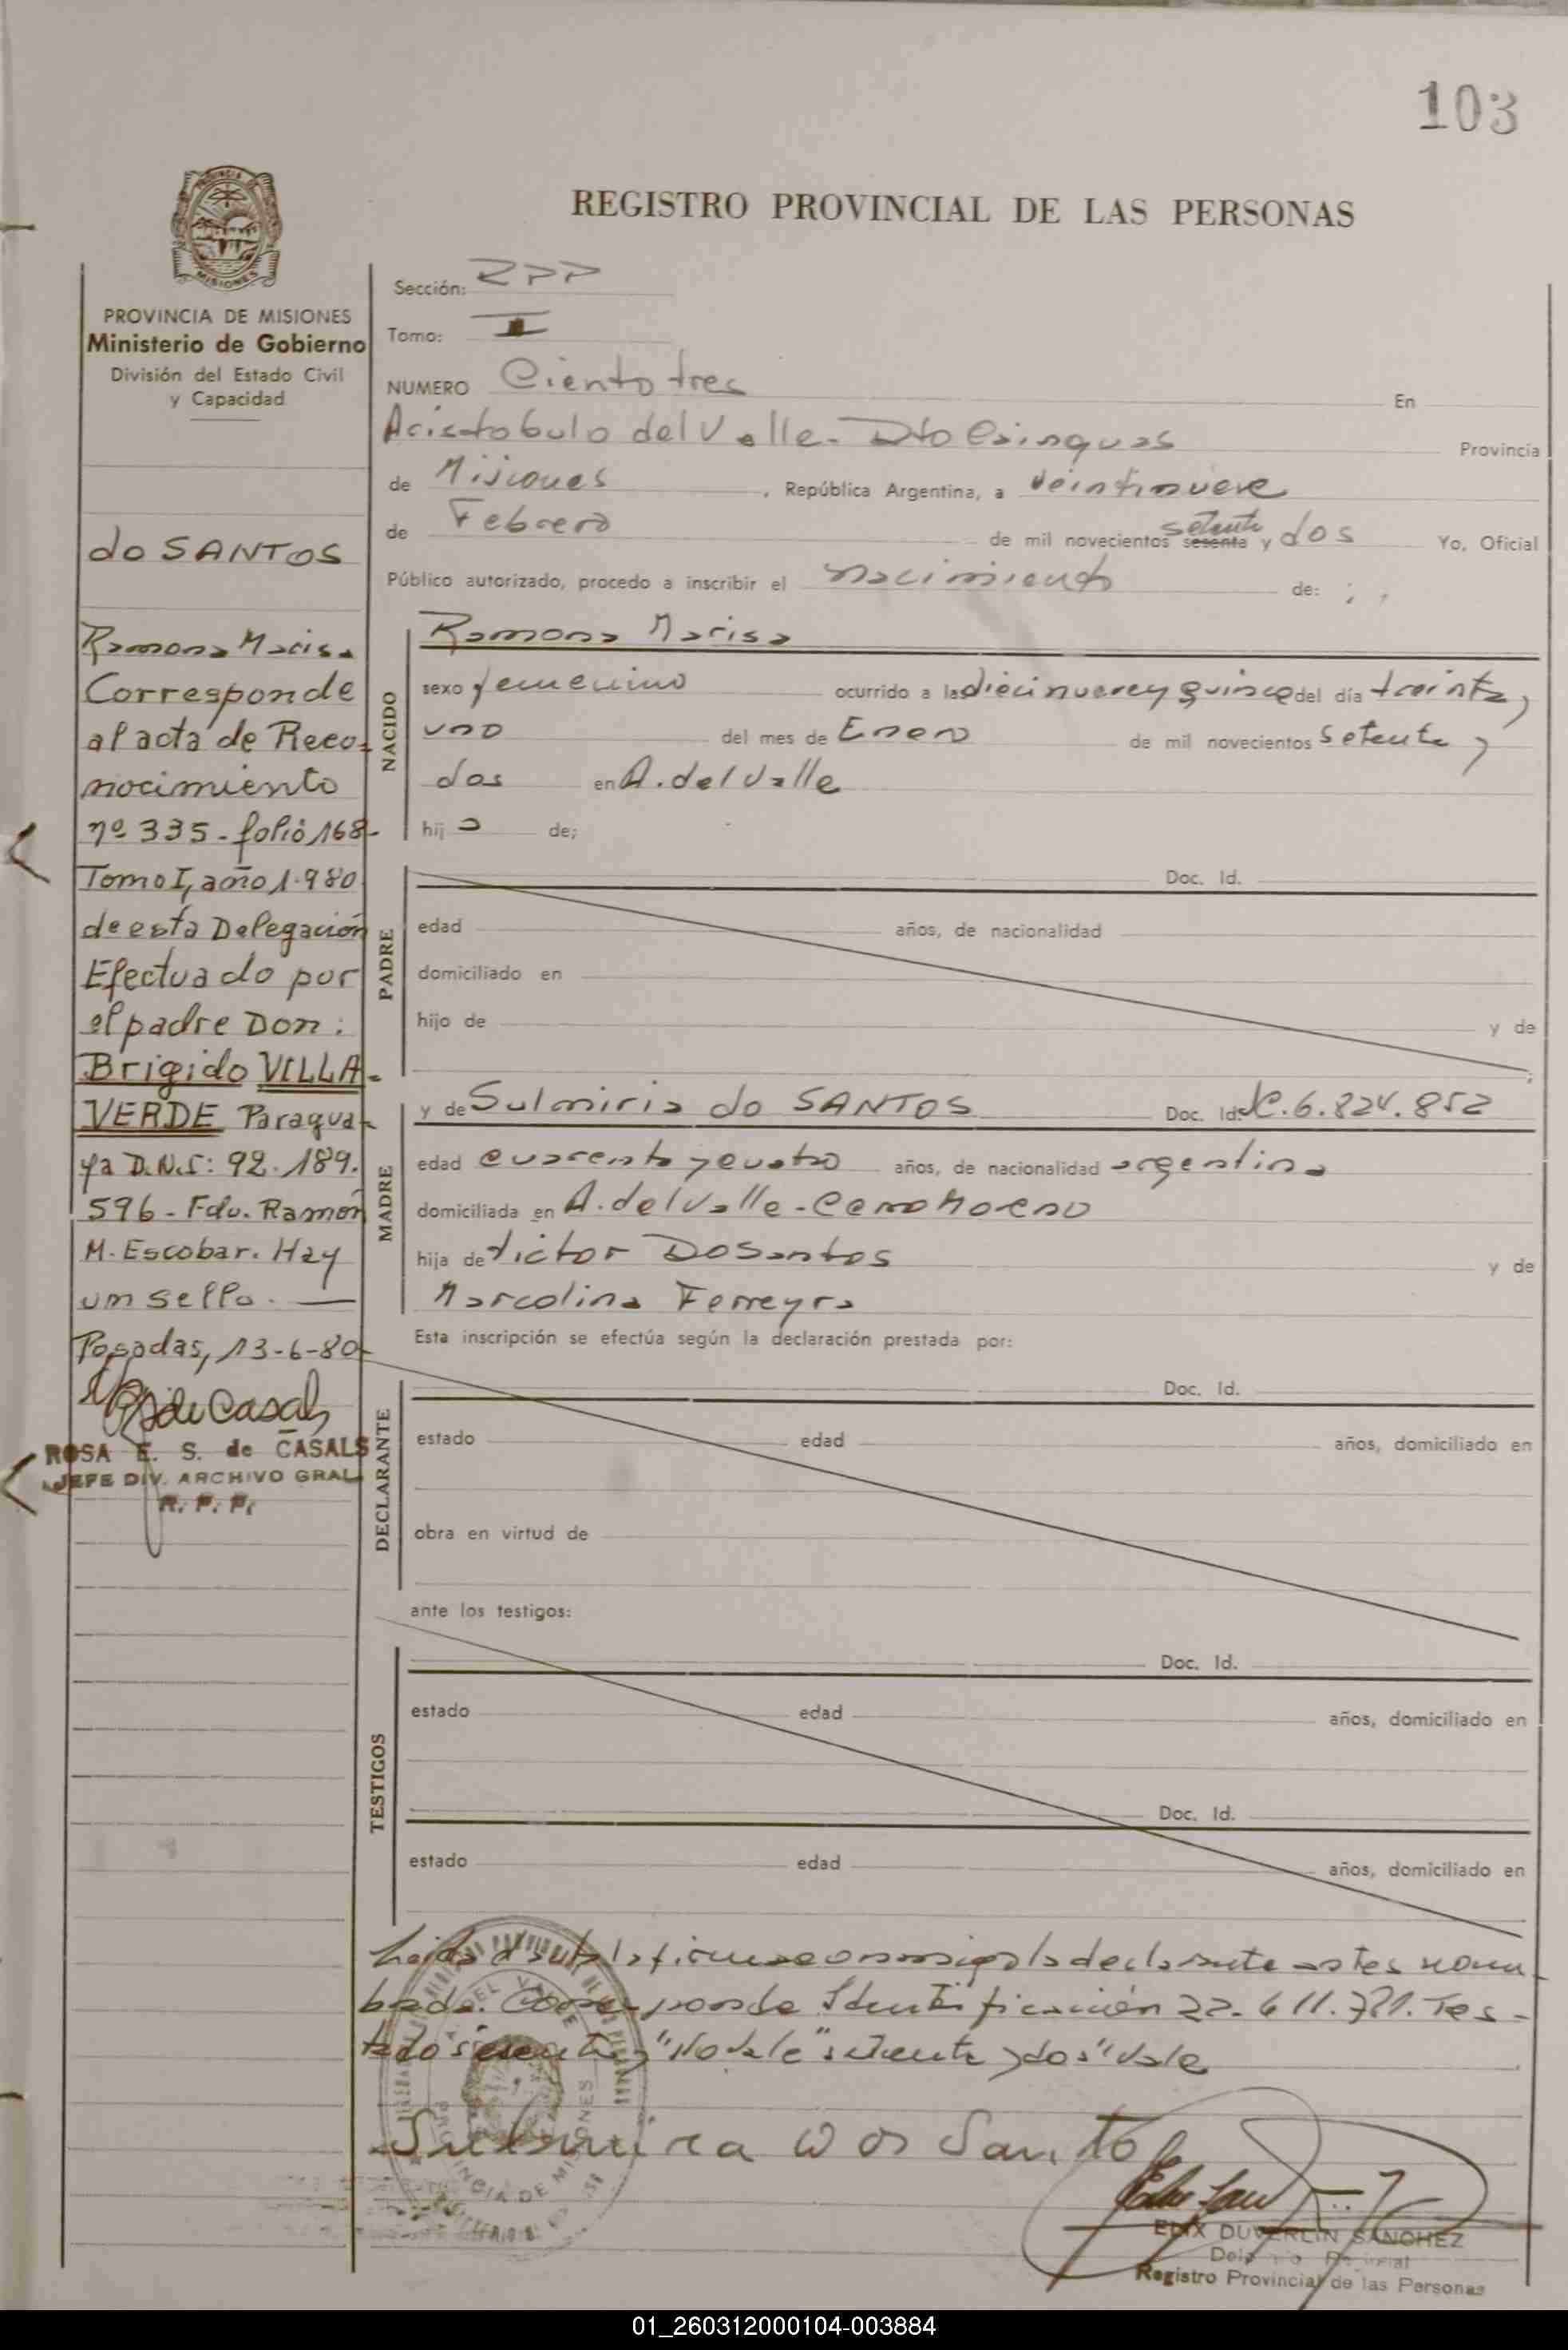 103
REGISTRO PROVINCIAL DE LAS PERSONAS
MISIONES
PROVINCIA DE MISIONES
Ministerio de Gobierno
División del Estado Civil
y Capacidad
do SANTOS
Ramona Marisa
Corresponde
al acta de Reco-
nocimiento
nº 335 - folio 168-
Tomo I, año 1.980
de esta Delegación
Efectuado por
el padre Don:
Brigido VILLA-
VERDE Paragua-
ya D.N.I: 92.189.
596 - Fdo. Ramón
M. Escobar. Hay
un sello.
Posadas, 13-6-80
ROSA E. S. de CASALS
JEFE DIV. ARCHIVO GRAL
R. P. P.
Sección: RPP
Tomo: I
NUMERO Ciento tres En
Aristobulo del Valle - Dto Cainguas Provincia
de Misiones , República Argentina, a veintinueve
de Febrero de mil novecientos sesenta setenta y dos Yo, Oficial
Público autorizado, procedo a inscribir el nacimiento de:
NACIDO
Ramona Marisa
sexo femenino ocurrido a las diecinueve y quince del día treinta y
uno del mes de Enero de mil novecientos setenta y
dos en A. del Valle
hija de;
PADRE
Doc. Id.
edad años, de nacionalidad
domiciliado en
hijo de y de
MADRE
y de Sulmiria do SANTOS Doc. Id. LC. 6.824.852
edad cuarenta y cuatro años, de nacionalidad argentina
domiciliada en A. del Valle - Cerro Moreno
hija de Victor DoSantos y de
Marcolina Ferreyra
Esta inscripción se efectúa según la declaración prestada por:
DECLARANTE
Doc. Id.
estado edad años, domiciliado en
obra en virtud de
ante los testigos:
TESTIGOS
Doc. Id.
estado edad años, domiciliado en
Doc. Id.
estado edad años, domiciliado en
Leida el acta la firma conmigo la declarante antes nom-
brada. Corresponde Identificación 22.611.721. Tes-
tado sesenta y "No vale" setenta y dos "Vale
Sulmira Dos Santo
ELIX DUVERLIN SANCHEZ
Registro Provincial de las Personas
01_260312000104-003884